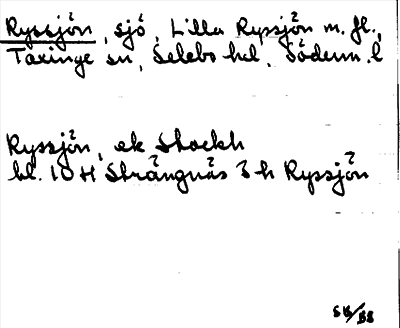 Ryssjön, sjö, Lilla Ryssjön m. fl.,
Taxinge sn, Selebo hd, Söderm. l
Ryssjön, ek Stockh
bl. 10 H Strängnäs 3 h Ryssjön
SB/BB